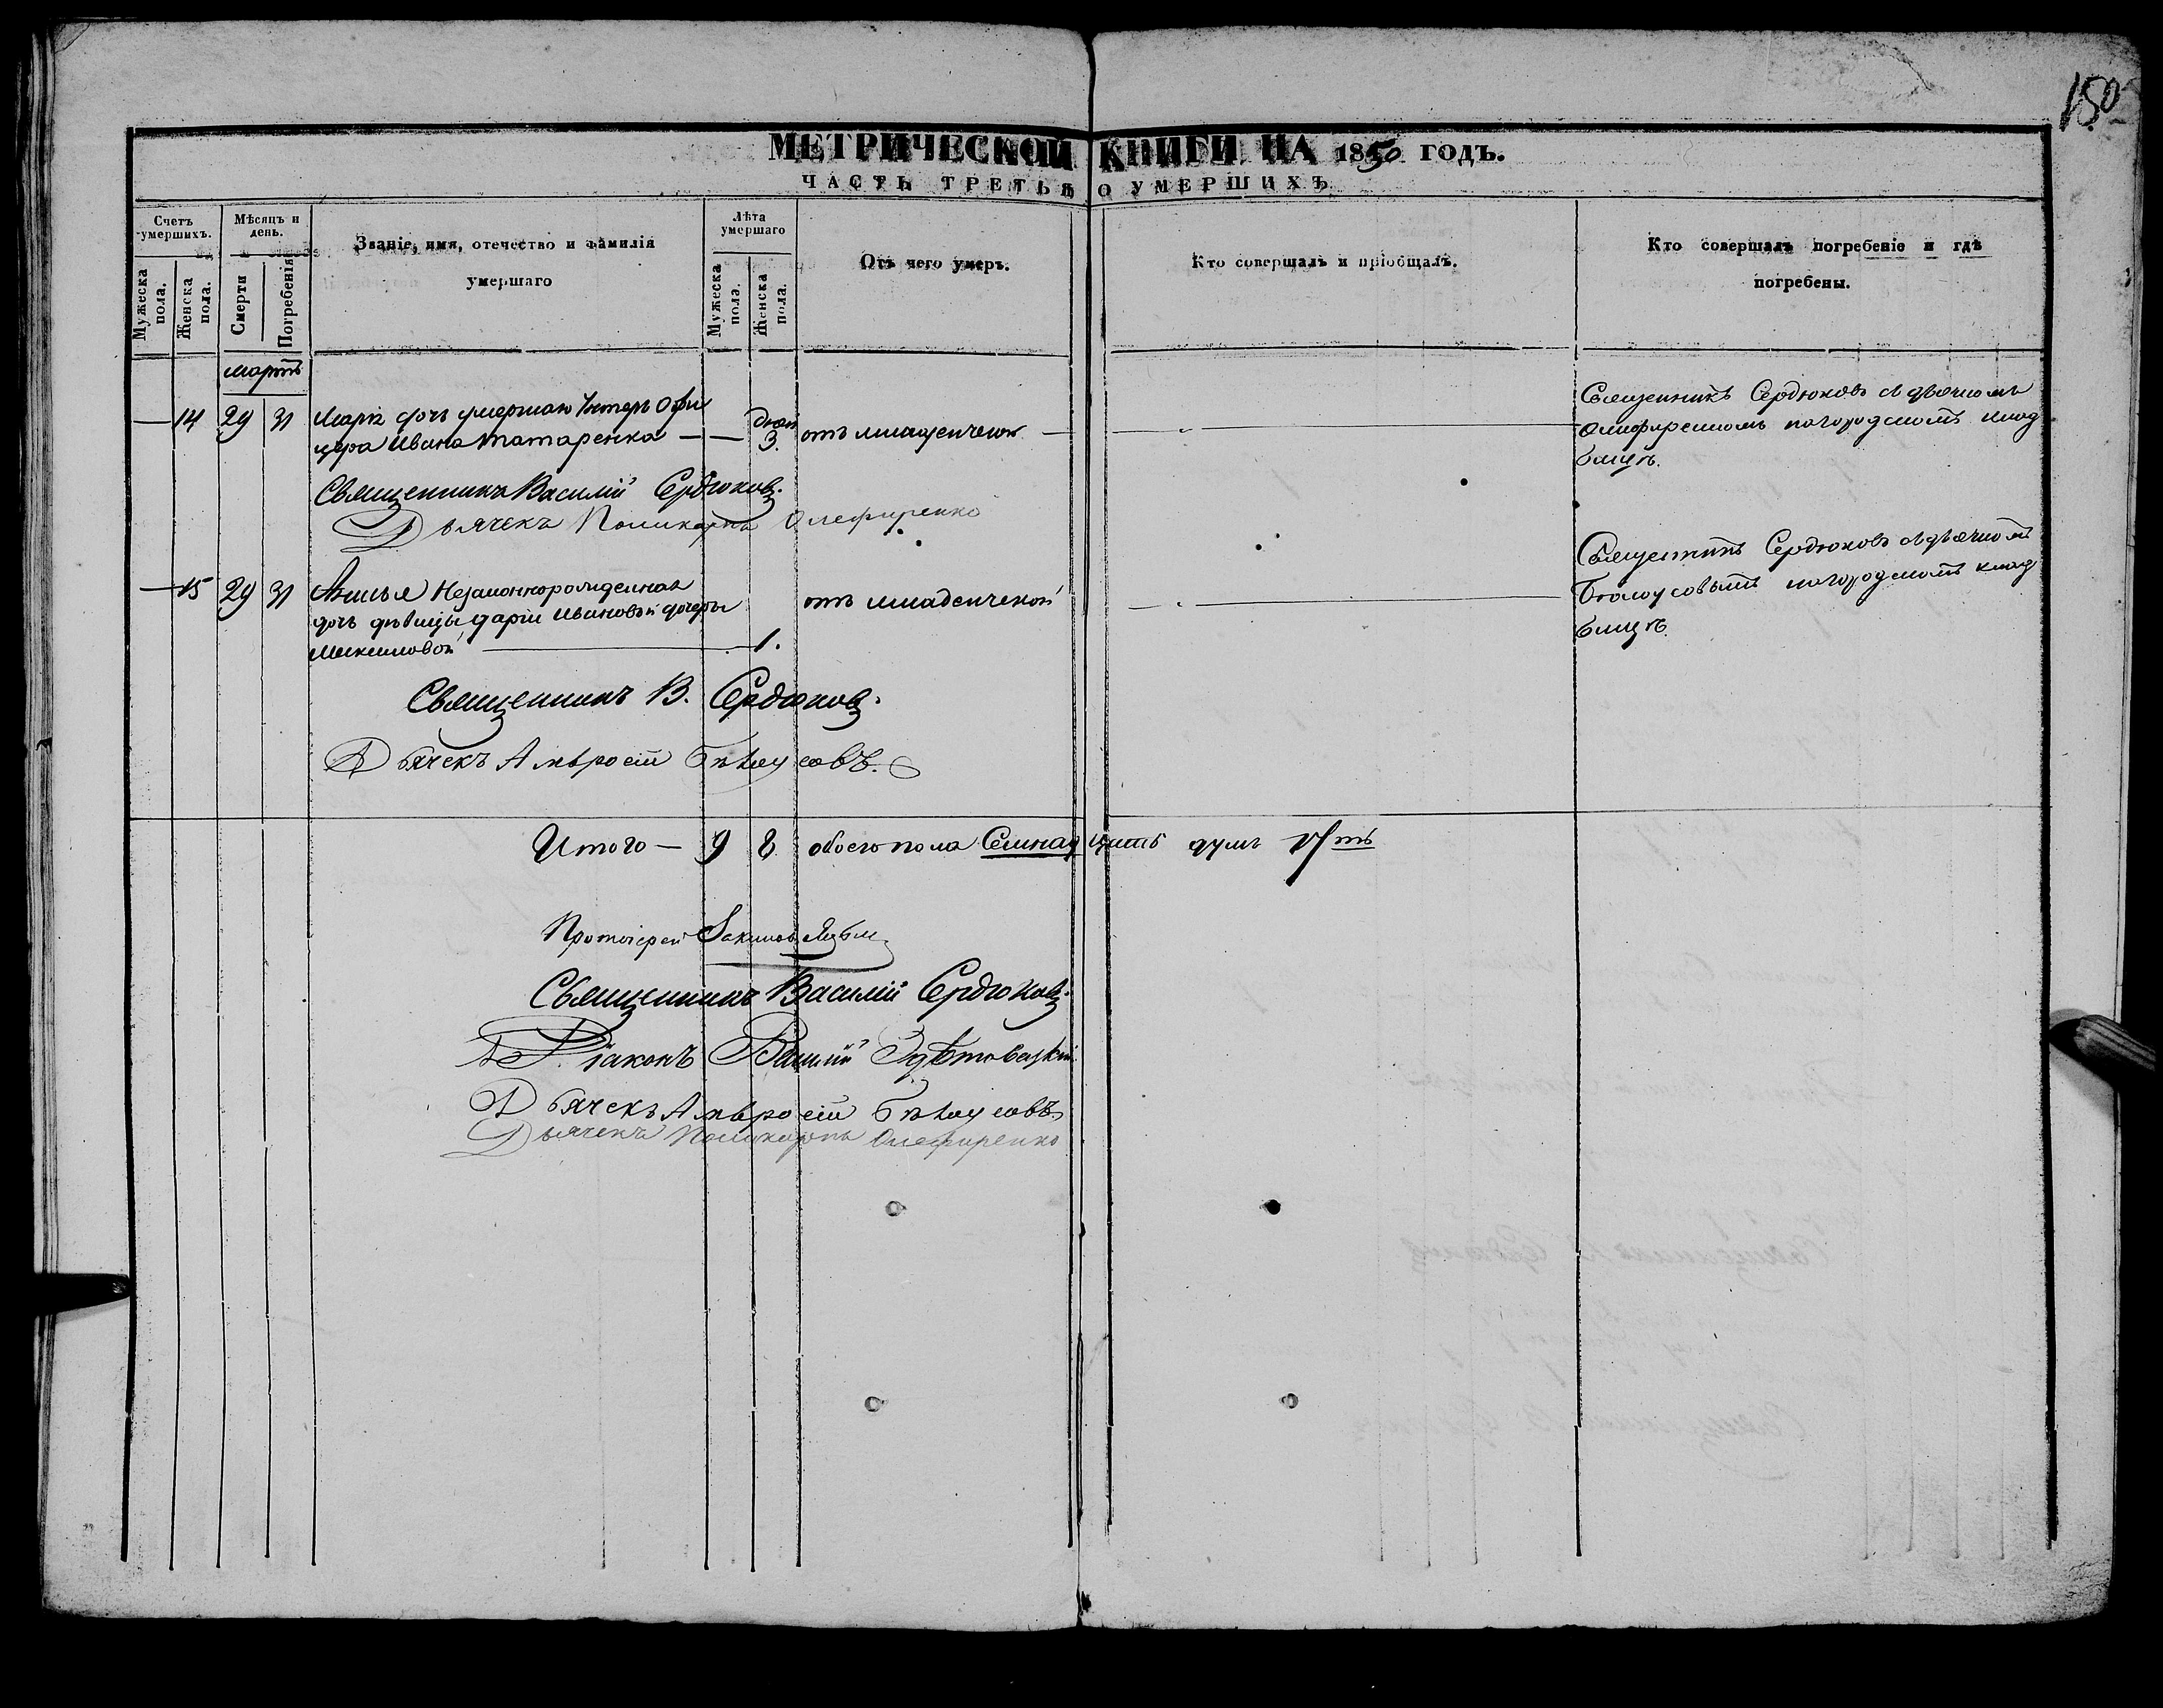 150
МЕТРИЧЕСКОЙ КНИГИ НА 1850 ГОДЪ.
ЧАСТЬ ТРЕТЬЯ О УМЕРШИХЪ
Счетъ умершихъ.
Мужеска пола.
Женска пола.
Мѣсяцъ и день.
Смерти
Погребенія
Званіе, имя, отечество и фамилія
умершаго
Лѣта умершаго
Мужеска пола.
Женска пола.
Отъ чего умеръ.
Кто совершалъ и пріобщалъ.
Кто совершалъ погребеніе и гдѣ
погребены.
мартъ
— 14 29 31 дочь умершаго Унтеръ Офи
цера Ивана Татаренка — — дней 3. отъ младенческой —
Священникъ Сердюковъ съ дьячкомъ
Олифиренкомъ на городскомъ клад
бищѣ.
Священникъ Василій Сердюковъ.
Дьячекъ Поликарпъ Олефиренко
— 15 29 31 Незаконнорожденная
дочь дѣвицы Даріи Ивановой дочери
1.
отъ младенческой
Священникъ Сердюковъ съ дьячкомъ
Бѣлоусовымъ на городскомъ клад
бищѣ.
Священникъ В. Сердюковъ.
Дьячекъ Амвросій Бѣлоусовъ.
Итого — 9 8 обоего пола Семнадцать душъ 17ть
Протоіерей
Священникъ Василій Сердюковъ.
Діаконъ Василій
Дьячекъ Амвросій Бѣлоусовъ
Дьячекъ Поликарпъ Олефиренко